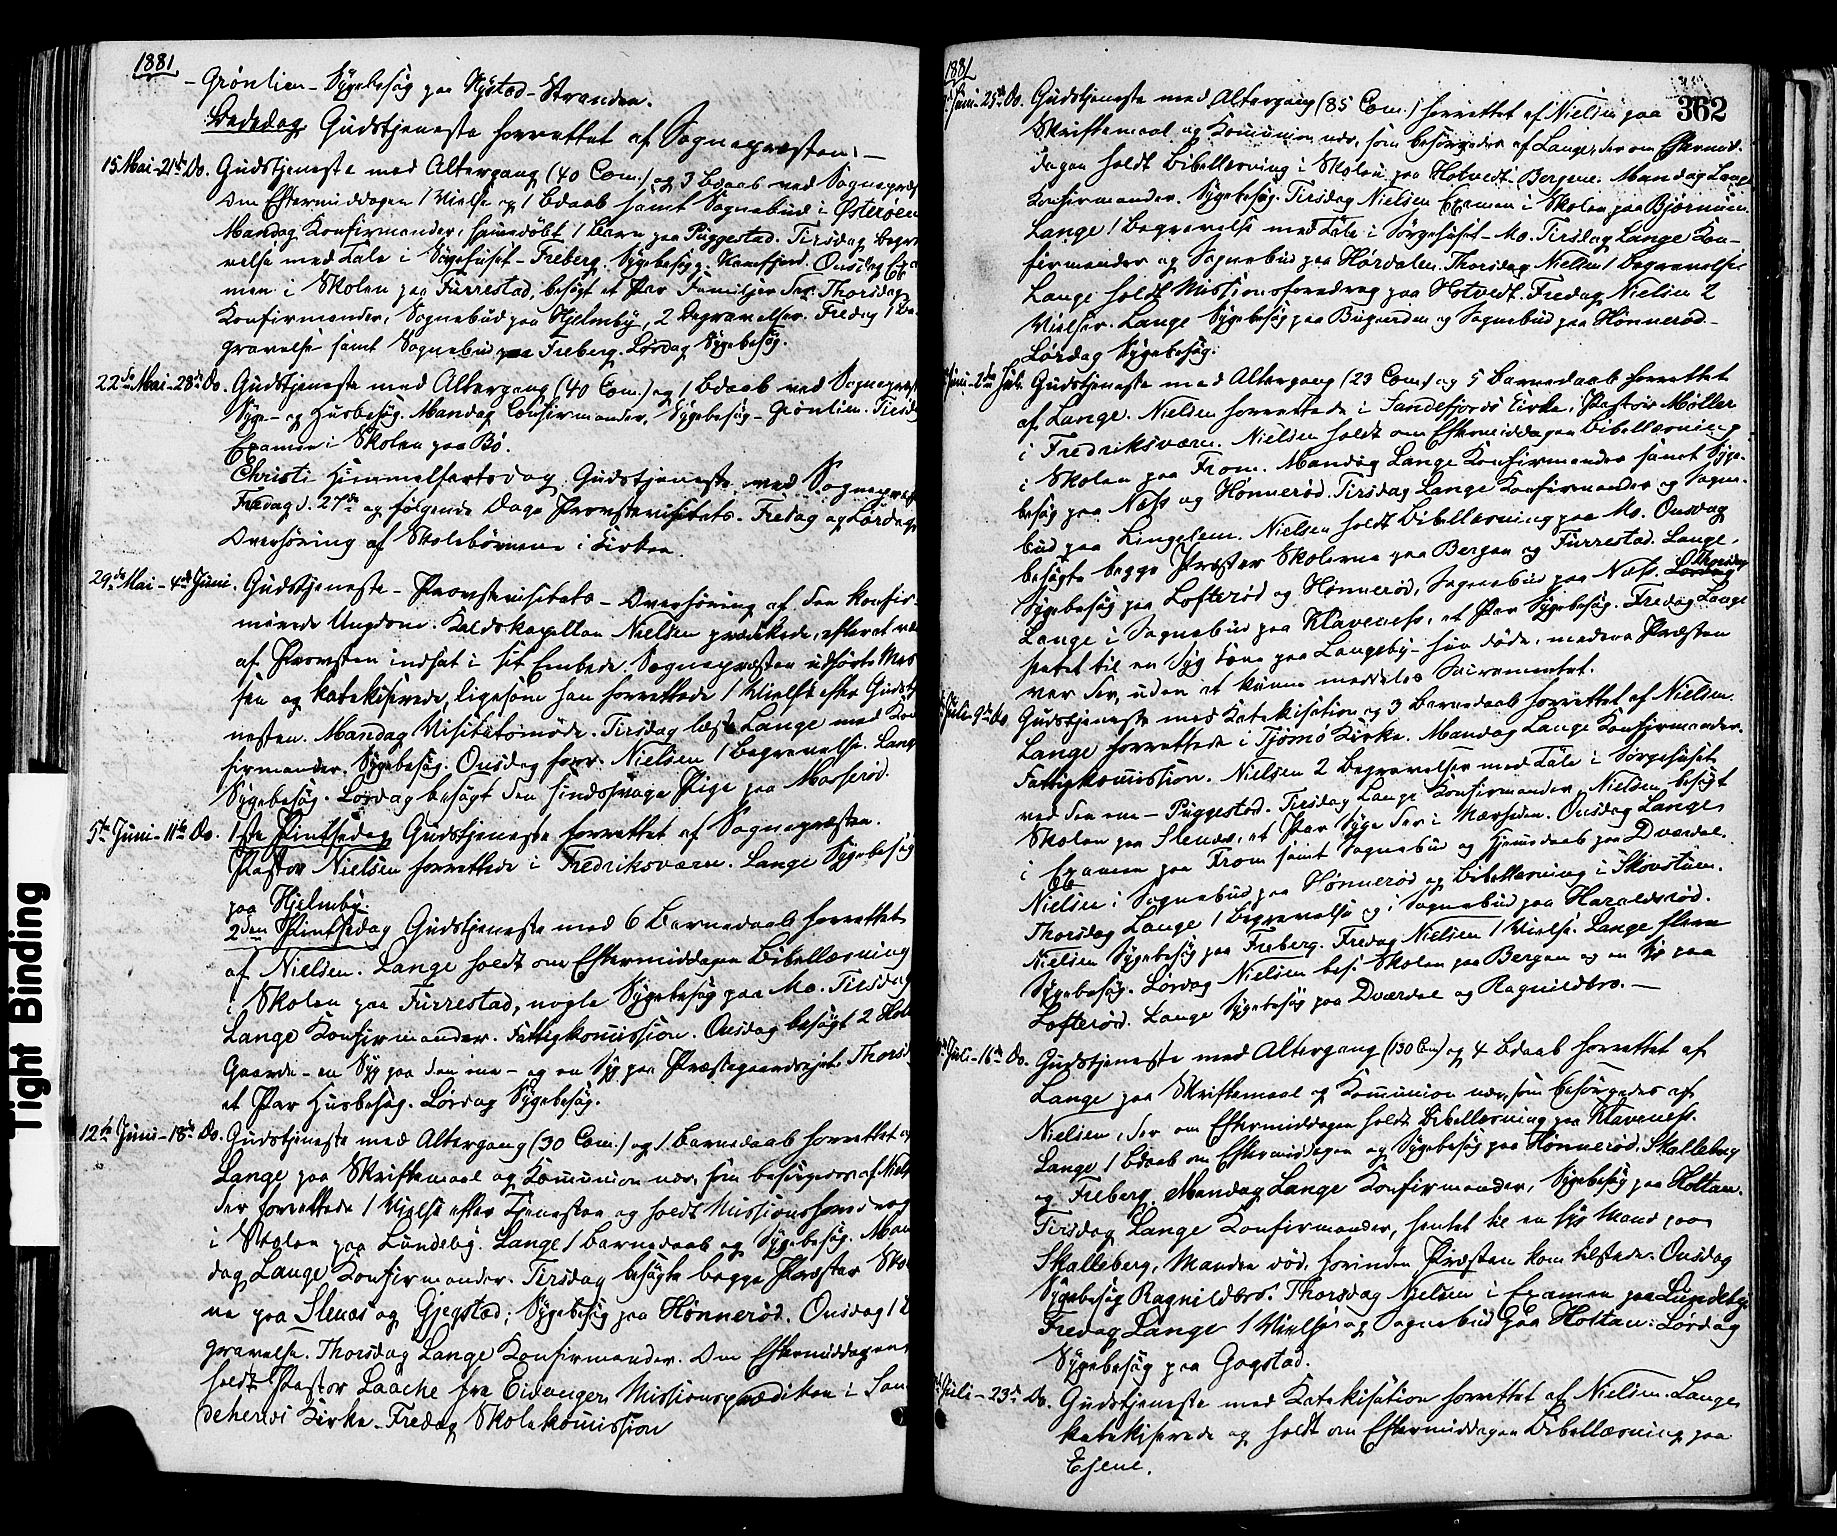 1881
- Grönlien - Sygebesøg paa Nystad-Stranden.
Bededag Gudstjeneste forrettet af Sognepræsten. -
15 Mai - 21de Do. Gudstjeneste med Altergang (40 Com.) og 3 Bdaab ved Sognepræs
Om Eftermiddagen 1 Vielse og 1 Bdaab samt Sognebud i Østerøen
Mandag Konfirmander, hjemmedøbt 1 Barn paa Puggestad. Tirsdag Begra
velse med Tale i Sørgehuset - Freberg. Sygebesøg. Ramfjord. Onsdag Exa
men i Skolen paa Furrestad, besøgt et Par Familier der. Thorsdag
Konfirmander, Sognebud paa Hjelmby, 2 Begravelser. Fredag 1 Be
gravelse samt Sognebud paa Freberg. Lørdag Sygebesøg.
22de Mai - 28de Do. Gudstjeneste med Altergang (40 Com.) og 1 Bdaab ved Sognepræst
Syge- og Husbesøg. Mandag Confirmander, Sygebesøg - Grönlien. Tirsd
Examen i Skolen paa Bø.
Christi Himmelfartsdag Gudstjeneste ved Sognepræst
Fredag d. 27de og følgende Dage Provstevisitats. Fredag og Lørdag
Overhøring af Skolebørnene i Kirken.
29de Mai - 4de Juni. Gudstjeneste - Provstevisitats - Overhøring af den konfir-
merede Ungdom. Kaldskapellan Nielsen prædikede, efter at vær
af Provsten indsat i sit Embede. Sognepræsten udførte Mes
sen og katekiserede, ligesom han forrettede 1 Vielse efter Gudstj
nesten. Mandag Visitatsmøde. Tirsdag læste Lange med Kon
firmander. Sygebesøg. Onsdag forr. Nielsen 1 Begravelse. Lang
Sygebesøg. Lørdag besøgt den sindssvage Pige paa Masserød.
5te Juni - 11te Do. 1ste Pintsedag Gudstjeneste forrettet af Sognepræsten.
Pastor Nielsen forrettede i Fredriksværn. Lange Sygebesøg
paa Hjelmby.
2den Pintsedag Gudstjeneste med 6 Barnedaab forrettet
af Nielsen. Lange holdt om Eftermiddagen Bibellæsning
i Skolen paa Furrestad, nogle Sygebesøg paa Mo. Tirsdag
Lange Konfirmander. Fattigkomission. Onsdag besøgt 2 Hol
Gaarde - en Syg paa den ene - og en Syg paa Præstegaardsejet. Thorsd
et Par Husbesøg. Lørdag Sygebesøg.
12te Juni - 18de Do. Gudstjeneste med Altergang (30 Com.) og 1 Barnedaab forrettet af
Lange paa Skriftemaal og Komunion nær, som besørgedes af Niels
der forrettede 1 Vielse efter Tjenesten og holdt Missionsforedrag
i Skolen paa Lundeby. Lange 1 Barnedaab og Sygebesøg. Man
dag Lange Konfirmander. Tirsdag besøgte begge Præster Sko
ne paa Stenas og Gjegstad; Sygebesøg paa Hønnerød. Onsdag 1 B
gravelse. Thorsdag Lange Konfirmander. Om Eftermiddagen
holdt Pastor Laache fra Eidanger Missionsprædiken i San
deherreds Kirke. Fredag Skolekomission
1881
362
Juni - 25de Do. Gudstjeneste med Altergang (85 Com.) forrettet af Nielsen paa
Skriftemaal og Komunion nær, som besørgedes af Lange, der om Eftermid-
dagen holdt Bibellæsning i Skolen paa Hotvedt-Bergene. Mandag Lange
Konfirmander. Sygebesøg. Tirsdag Nielsen Examen i Skolen paa Bjørnum.
Lange 1 Begravelse med Tale i Sørgehuset - Mo. Tirsdag Lange Kon-
firmander og Sognebud paa Hørdalen. Thorsdag Nielsen 1 Begravelse.
Lange holdt Missionsforedrag paa Hotvedt. Fredag Nielsen 2
Vielser. Lange Sygebesøg paa Bugaarden og Sognebud paa Hønnerød. -
Lørdag Sygebesøg.
Juni - 2den Juli. Gudstjeneste med Altergang (23 Com.) og 5 Barnedaab forrettet
af Lange. Nielsen forrettede i Sandefjords Kirke, Pastor Møller
i Fredriksværn. Nielsen holdt om Eftermiddagen Bibellæsning
i Skolen paa From. Mandag Lange Konfirmander samt Syge-
besøg paa Næss og Hønnerød. Tirsdag Lange Konfirmander og Sogne-
bud paa Lingelem. Nielsen holdt Bibellæsning paa Mo. Onsdag
besøgte begge Præster Skolerne paa Bergan og Furrestad. Lange
Sygebesøg paa Lofterød og Hønnerød, Sognebud paa Næss. Thorsdag
Lange i Sognebud paa Klavenæss, et Par Sygebesøg. Fredag Lange
hentet til en syg Kone paa Langeby - hun døde, medens Præsten
var der, uden at kunne meddeles Sacramentet.
Juli - 9de Do. Gudstjeneste med Katekisation og 3 Barnedaab forrettet af Nielsen.
Lange forrettede i Tjømø Kirke. Mandag Lange Konfirmander.
Fattigkomission. Nielsen 2 Begravelser med Tale i Sørgehuset
ved den ene - Puggestad. Tirsdag Lange Konfirmander, Nielsen besøgt
Skolen paa Stenas, et Par Syge der i Nærheden. Onsdag Lange
i Examen paa From samt Sognebud og Hjemmedaab paa Dværdal.
Nielsen i Sognebud paa Hønnerød og Bibellæsning i Skovstuen.
Thorsdag Lange 1 Begravelse og i Sognebud paa Haraldsrød.
Nielsen Sygebesøg paa Freberg. Fredag Nielsen 1 Vielse. Lange flere
Sygebesøg. Lørdag Nielsen bes. Skolen paa Bergan og en Syg paa
Lofterød. Lange Sygebesøg paa Dværdal og Ragnildbro. -
Juli - 16de Do. Gudstjeneste med Altergang (130 Com.) og 4 Bdaab forrettet af
Lange paa Skriftemaal og Komunion nær, som besørgedes af
Nielsen, der om Eftermiddagen holdt Bibellæsning paa Klavenæss.
Lange 1 Bdaab om Eftermiddagen og Sygebesøg paa Hønnerød, Skalleberg
og Freberg. Mandag Lange Konfirmander, Sygebesøg paa Holtan.
Tirsdag Lange Konfirmander, hentet til en syg Mand paa
Skalleberg, Manden død, forinden Præsten kom tilstede. Onsdag
Sygebesøg Ragnildbro. Thorsdag Nielsen i Examen paa Lundeby.
Fredag Lange 1 Vielse og Sognebud paa Holtan. Lørdag
Sygebesøg paa Gogstad.
Juli - 23de Do. Gudstjeneste med Katekisation forrettet af Nielsen. Lange
katekiserede og holdt om Eftermiddagen Bibellæsning paa
Ejene.
Tight Binding